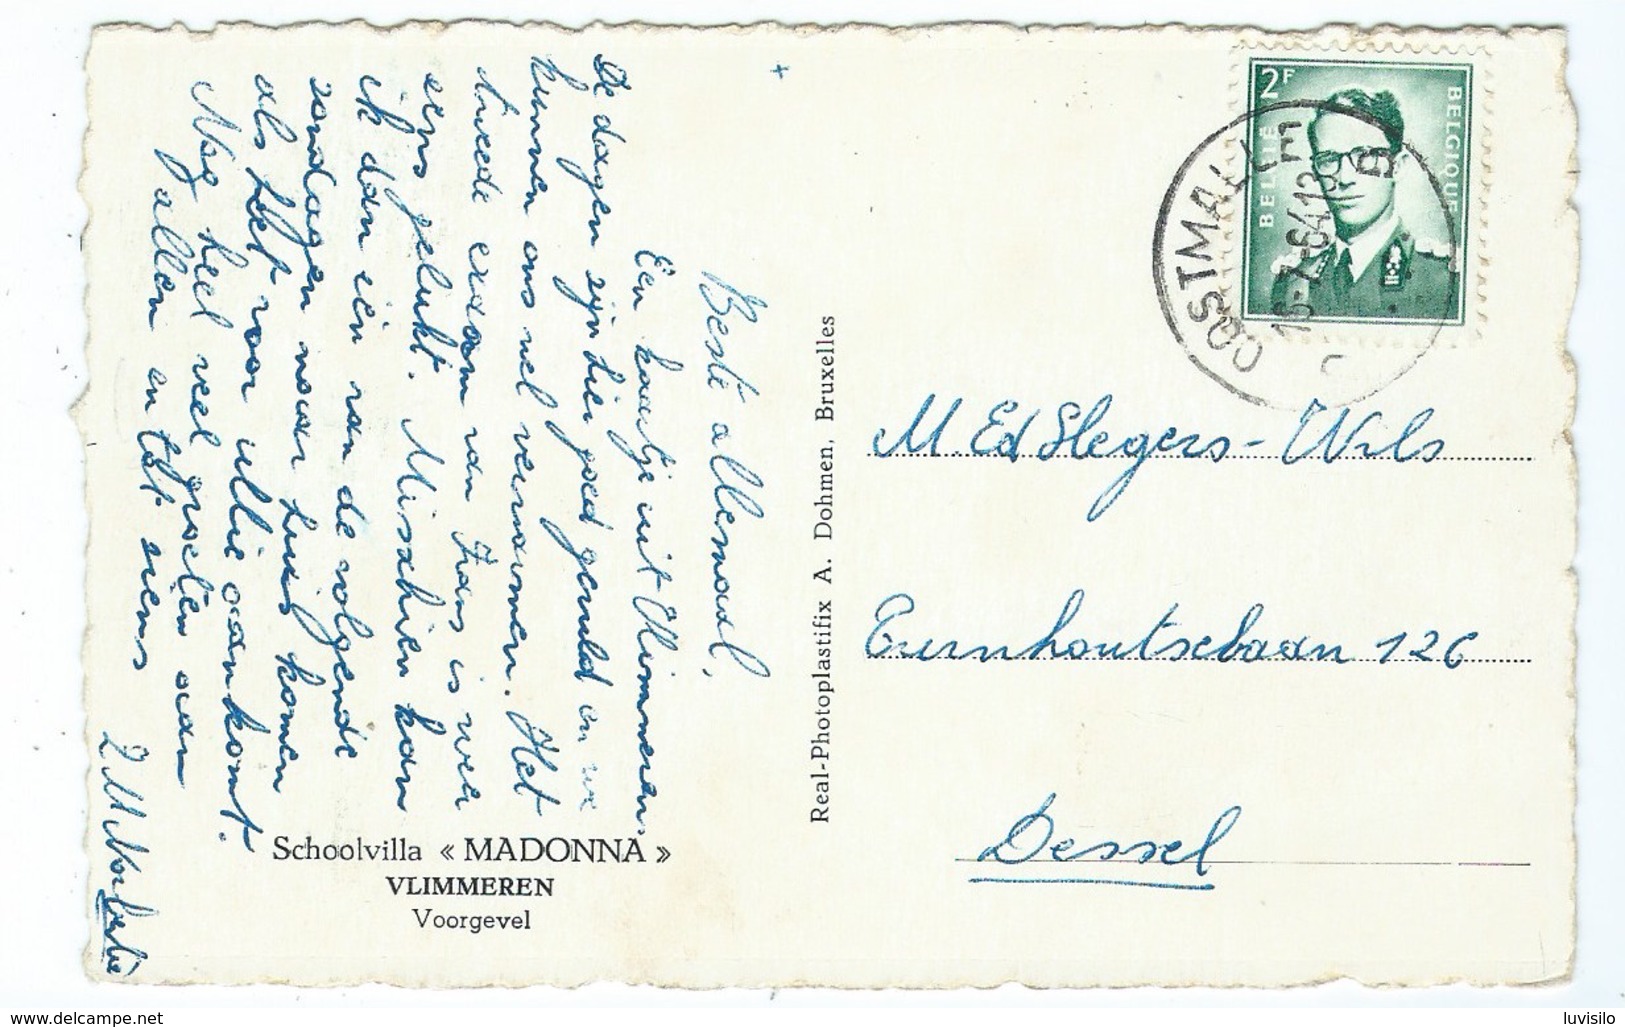 +
Beste allemaal,
Een kaartje uit Vlimmeren.
De dagen zijn hier goed gevuld en we
kunnen ons wel vernamen. Het
tweede exaam van Frans is weer
eens gelukt. Misschien kan
ik dan één van de volgende
zondagen naar huis komen
als het voor ullie aankomt.
Nog heel veel groeten aan
allen en tot ziens
Z M Norbertie
Schoolvilla « MADONNA »
VLIMMEREN
Voorgevel
Real-Photoplastifix A. Dohmen, Bruxelles
2F
BELGIË
BELGIQUE
OOSTMALLE
16-7-64 13
B
M. Ed Slegers - Wils
Turnhoutsebaan 126
Dessel
www.delcampe.net
luvisilo